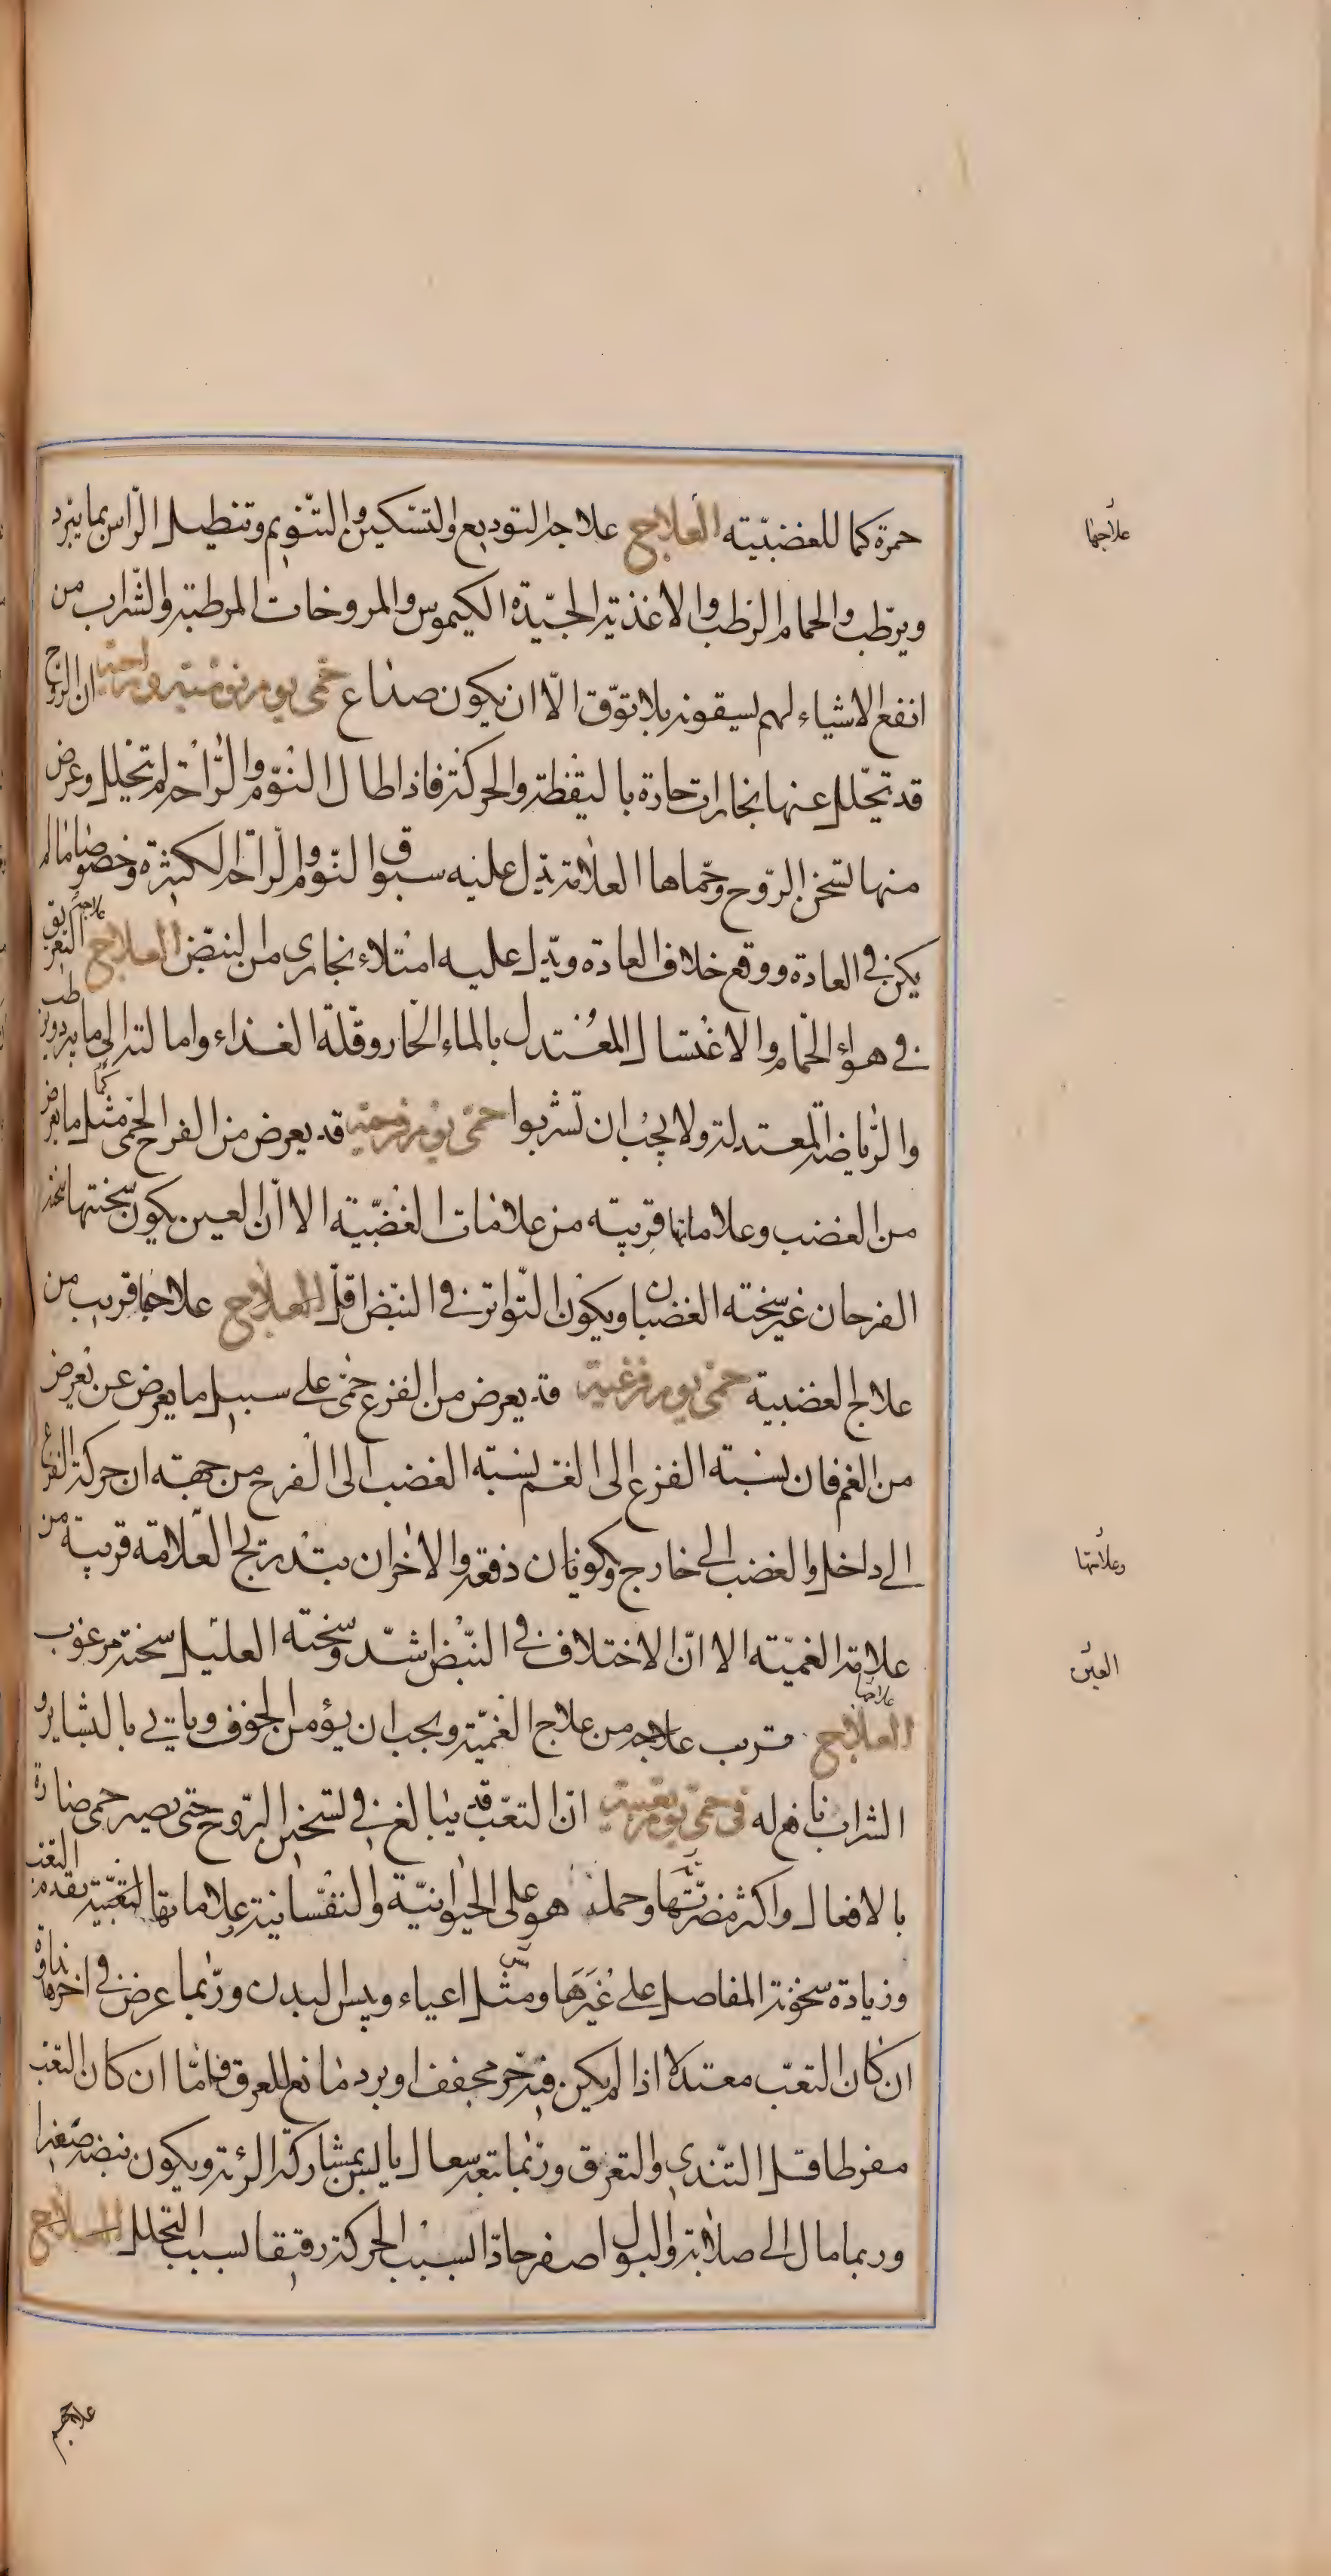 حمرة كما للغضبيّة العلاج علاجه التوديع والتسكين والتنويم وتنطيل الرأس بما يبرد
ويرطب والحمام الرطب والاغذية الجيّدة الكيموس والمروخات المرطبة والشراب من
انفع الاشياء لهم يسقونه بلا توقّ الّا ان يكون صداع حمى يوم نومية وراحية ان الروح
قد تتحلل عنها بخارات حارة باليقظة والحركة فاذا طال النوم والراحة لم تتحلل وعرض
منها تسخن الروح وحماها العلامة يدل عليه سبوق النوم والراحة الكثيرة وخصوصا ما لم
يكن في العادة ووقع خلاف العادة ويدل عليه امتلاء بخاري من النبض العلاج علاجه التعريق
في هواء الحمام والاغتسال المعتدل بالماء الحار وقلة الغذاء وامالته الى ما يبرد ويرطب
والرياضة المعتدلة ولا يجب ان تشربوا حمى يوم فرحية قد يعرض من الفرح الحمى مثل ما يعرض
من الغضب وعلاماتها قريبة من علامات الغضبيّة الا ان العين يكون سحنتها سحنة
الفرحان غير سحنة الغضبان ويكون التواتر في النبض اقل العلاج علاجها قريب من
علاج الغضبية حمى يوم فزعية قد يعرض من الفزع حمى على سبيل ما يعرض عن تعرض
من الغم فان نسبة الفزع الى الغم نسبة الغضب الى الفرح من جهة ان حركة الفزع
الى داخل والغضب الى خارج ويكونان دفعة والاخران بتدريج العلامة قريبة من
علامة الغميّة الا ان الاختلاف في النبض اشد وسحنة العليل سحنة مرعوب
العلاج علاجها قريب علاجه من علاج الغميّة ويجب ان يؤمن الخوف ويأتي بالبشاير و
الشراب نافع له في حمى يوم تعبية ان التعب قد يبالغ في تسخين الروح حتى يصير حمى ضارة
بالافعال واكثر مضرتها وحمله هو على الحيوانية والنفسانية علاماتها التعبية تقدم التعب
وزيادة سخونة المفاصل على غيرها ومس اعياء ويبس البدن وربما عرض في اخرها نداوة
ان كان التعب معتدلا اذا لم يكن فيه حر مجفف او برد مانع للعرق فاما ان كان التعب
مفرطا قل التندي والتعرق وربما تبعه سعال يابس بمشاركة الرئة ويكون نبضه صغيرا
وربما مال الى صلابة والبول اصفر حادا بسبب الحركة رقيقا بسبب التحلل العلاج
علاجهم
علاجها
وعلامتها
العين